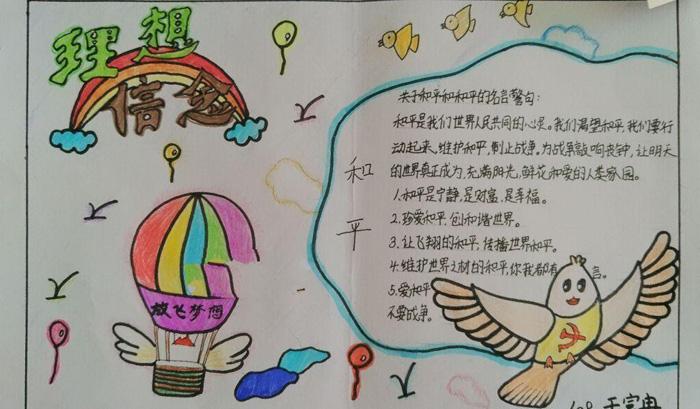 理想
信念
放飞梦想
和平
关于和平和和平的名言警句:
和平是我们世界人民共同的心灵。我们渴望和平,我们要行
动起来,维护和平,制止战争。为战争敲响丧钟,让明天
的世界真正成为,充满阳光,鲜花和爱的人类家园。
1.和平是宁静,是财富,是幸福。
2.珍爱和平,创和谐世界。
3.让飞翔的和平,传播世界和平。
4.维护世界之材的和平,你我都有 言。
5.爱和平
不要战争。